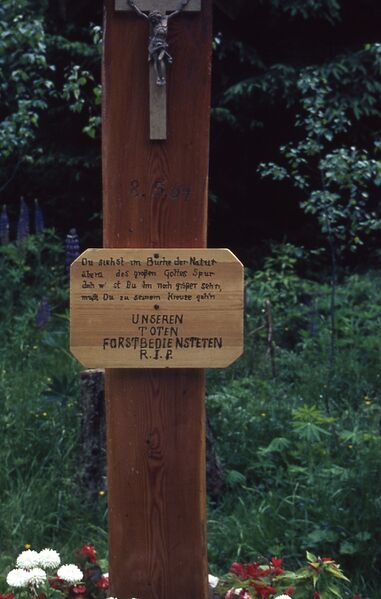 8.5.04
Du siehst im Buche der Natur
überal des großen Gottes Spur
doch w st Du ihn noch größer sehn,
mußt Du zu seinem Kreuze geh'n
UNSEREN
TOTEN
FORSTBEDIENSTETEN
R.I.P.